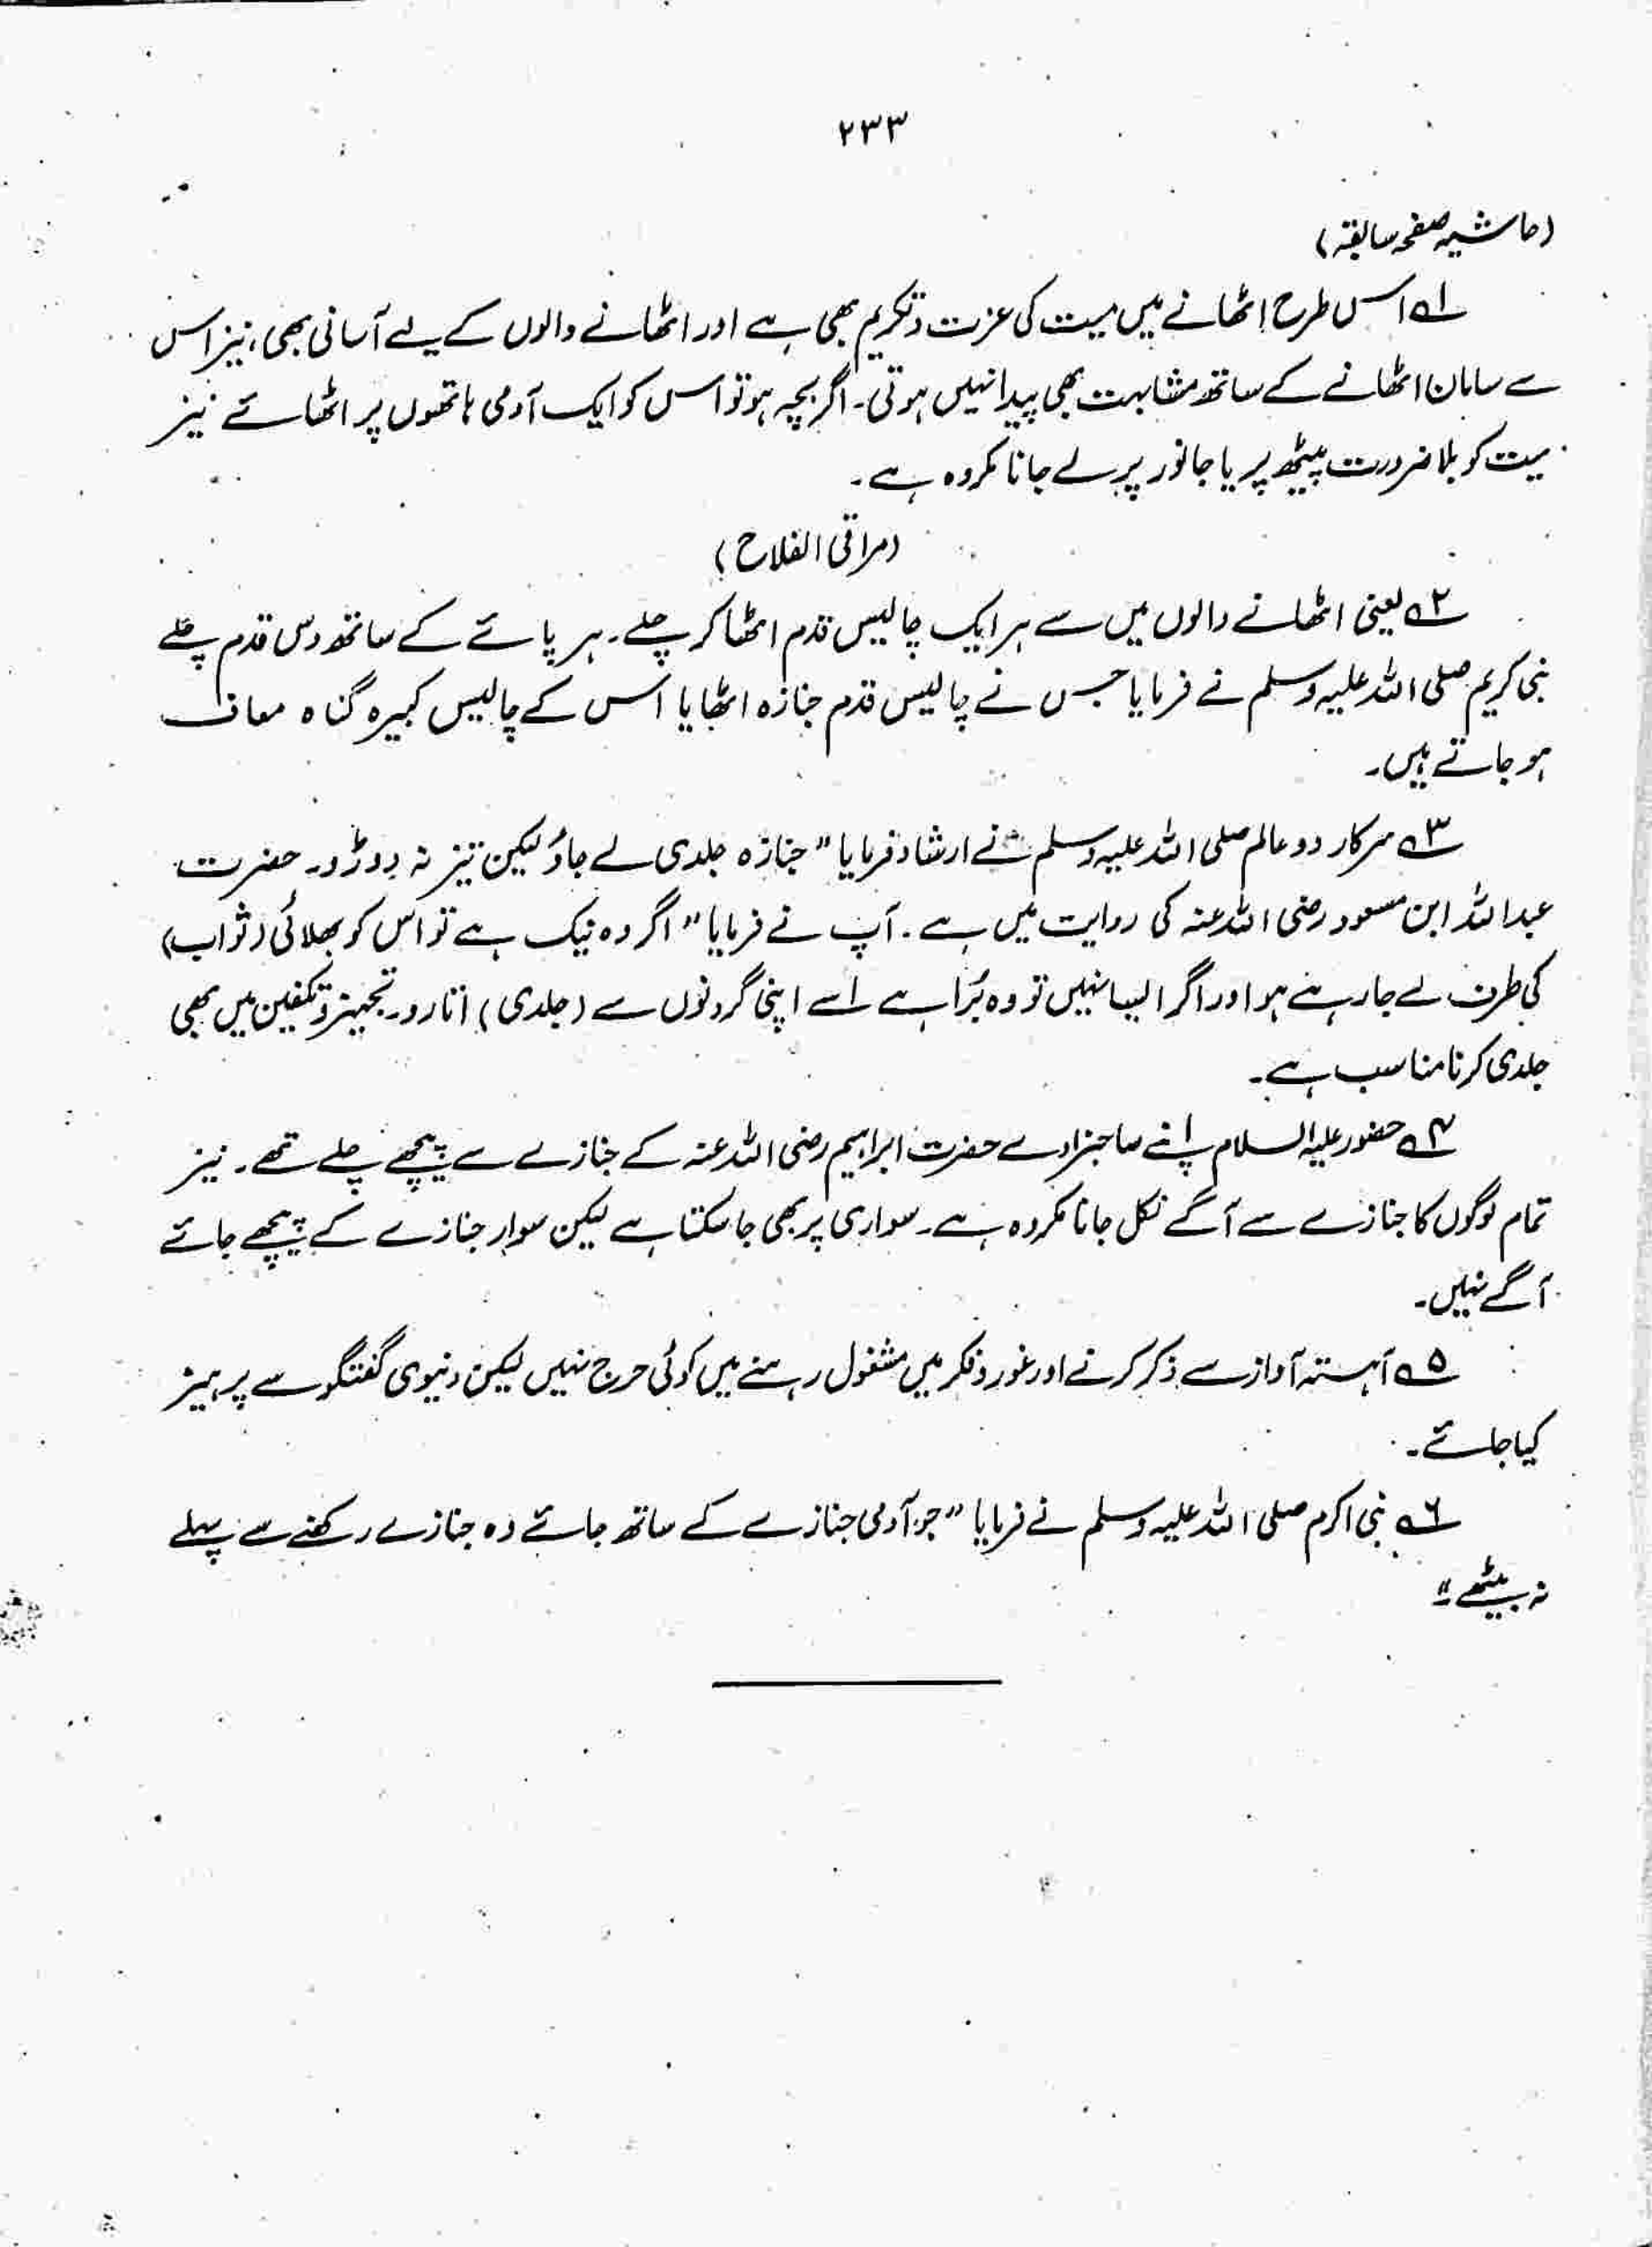 ۲۳۳
(حاشیہ صفحہ سابقہ)
۱؎ اس طرح اٹھانے میں میت کی عزت و تکریم بھی ہے اور اٹھانے والوں کے لیے آسانی بھی، نیز اس
سے سامان اٹھانے کے ساتھ مشابہت بھی پیدا نہیں ہوتی۔ اگر بچہ ہو تو اس کو ایک آدمی ہاتھوں پر اٹھائے نیز
میت کو بلا ضرورت پیٹھ پر یا جانور پر لے جانا مکروہ ہے۔
(مراقی الفلاح)
۲؎ یعنی اٹھانے والوں میں سے ہر ایک چالیس قدم اٹھا کر چلے۔ ہر پائے کے ساتھ دس قدم چلے
نبی کریم صلی اللہ علیہ وسلم نے فرمایا جس نے چالیس قدم جنازہ اٹھایا اس کے چالیس کبیرہ گناہ معاف
ہو جاتے ہیں۔
۳؎ سرکار دو عالم صلی اللہ علیہ وسلم نے ارشاد فرمایا "جنازہ جلدی لے جاؤ لیکن تیز نہ دوڑو۔ حضرت
عبداللہ ابن مسعود رضی اللہ عنہ کی روایت میں ہے۔ آپ نے فرمایا "اگر وہ نیک ہے تو اس کو بھلائی (ثواب)
کی طرف لے جا رہے ہو اور اگر ایسا نہیں تو وہ بُرا ہے اسے اپنی گردنوں سے (جلدی) اتارو۔ تجہیز و تکفین میں بھی
جلدی کرنا مناسب ہے۔
۴؎ حضور علیہ السلام اپنے صاحبزادے حضرت ابراہیم رضی اللہ عنہ کے جنازے سے پیچھے چلے تھے۔ نیز
تمام لوگوں کا جنازے سے آگے نکل جانا مکروہ ہے۔ سواری پر بھی جا سکتا ہے لیکن سوار جنازے کے پیچھے جائے
آگے نہیں۔
۵؎ آہستہ آواز سے ذکر کرنے اور غور و فکر میں مشغول رہنے میں کوئی حرج نہیں لیکن دنیوی گفتگو سے پرہیز
کیا جائے۔
۶؎ نبی اکرم صلی اللہ علیہ وسلم نے فرمایا "جو آدمی جنازے کے ساتھ جائے وہ جنازے رکھنے سے پہلے
نہ بیٹھے۔"